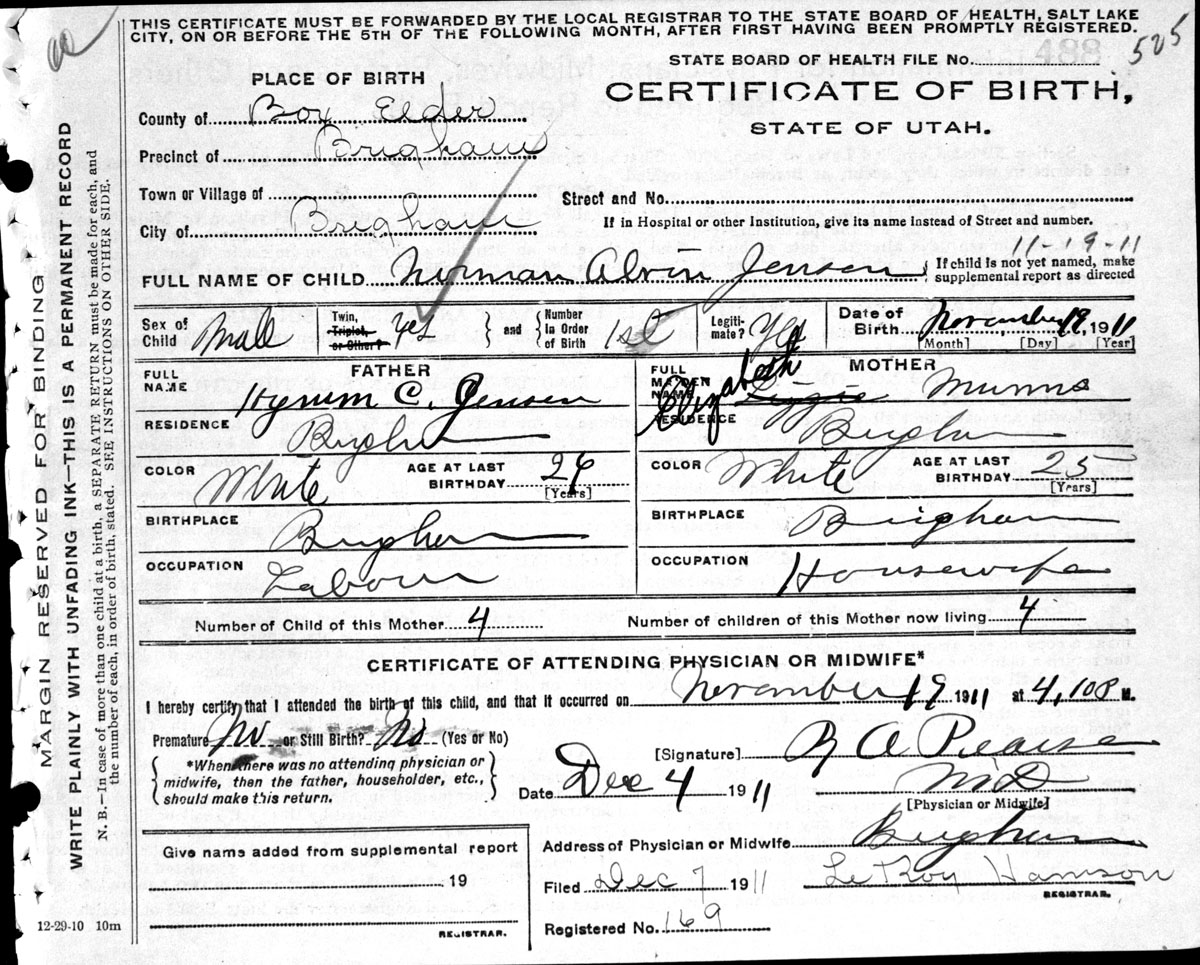 THIS CERTIFICATE MUST BE FORWARDED BY THE LOCAL REGISTRAR TO THE STATE BOARD OF HEALTH, SALT LAKE
CITY, ON OR BEFORE THE 5TH OF THE FOLLOWING MONTH, AFTER FIRST HAVING BEEN PROMPTLY REGISTERED.
525
STATE BOARD OF HEALTH FILE No. 488
PLACE OF BIRTH
CERTIFICATE OF BIRTH,
STATE OF UTAH.
County of Box Elder
Precinct of Brigham
Town or Village of
Street and No.
City of Brigham
If in Hospital or other Institution, give its name instead of Street and number.
11-19-11
FULL NAME OF CHILD Norman Alvin Jensen { If child is not yet named, make
supplemental report as directed
Sex of Child Male
Twin, Triplet, or Other? Yes } and { Number In Order of Birth 1st
Legitimate? Yes
Date of Birth November 19, 1911
[Month] [Day] [Year]
FATHER
FULL NAME Hyrum C. Jensen
RESIDENCE Brigham
COLOR White AGE AT LAST BIRTHDAY 26 [Years]
BIRTHPLACE Brigham
OCCUPATION Labour
MOTHER
FULL MAIDEN NAME Elizabeth Lizzie Munns
RESIDENCE Brigham
COLOR White AGE AT LAST BIRTHDAY 25 [Years]
BIRTHPLACE Brigham
OCCUPATION Housewife
Number of Child of this Mother 4 Number of children of this Mother now living 4
CERTIFICATE OF ATTENDING PHYSICIAN OR MIDWIFE*
I hereby certify that I attended the birth of this child, and that it occurred on November 19 1911 at 4,10 P M.
Premature No or Still Birth? No (Yes or No)
*When there was no attending physician or
midwife, then the father, householder, etc.,
should make this return.
[Signature] R A Pearse
Date Dec 4 1911 MD
[Physician or Midwife]
Address of Physician or Midwife Brigham
Filed Dec 7 1911 LeRoy Harrison
REGISTRAR.
Registered No. 169
Give name added from supplemental report
19
REGISTRAR.
12-29-10 10m
MARGIN RESERVED FOR BINDING
WRITE PLAINLY WITH UNFADING INK—THIS IS A PERMANENT RECORD
N. B.—In case of more than one child at a birth, a SEPARATE RETURN must be made for each, and
the number of each, in order of birth, stated. SEE INSTRUCTIONS ON OTHER SIDE.